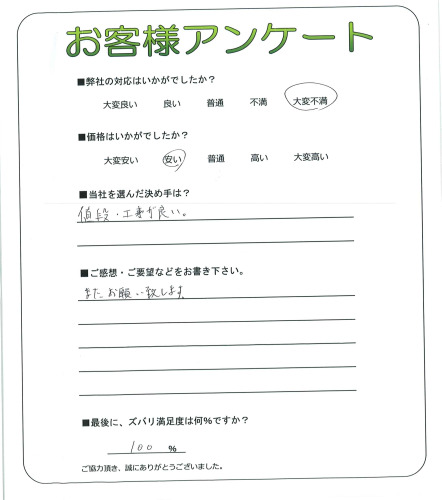 お客様アンケート
■弊社の対応はいかがでしたか?
大変良い 良い 普通 不満 大変不満
■価格はいかがでしたか?
大変安い 安い 普通 高い 大変高い
■当社を選んだ決め手は?
値段・工事が良い。
■ご感想・ご要望などをお書き下さい。
またお願い致します
■最後に、ズバリ満足度は何%ですか?
100 %
ご協力頂き、誠にありがとうございました。